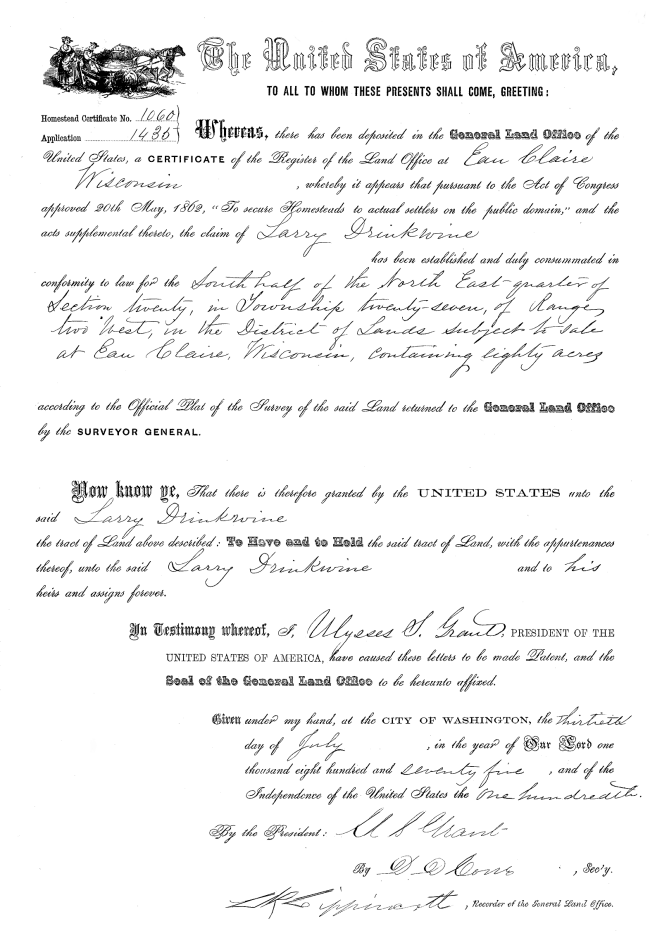 The United States of America,
TO ALL TO WHOM THESE PRESENTS SHALL COME, GREETING:
Homestead Certificate No. 1060
Application 1435
Whereas, there has been deposited in the General Land Office of the
United States, a CERTIFICATE of the Register of the Land Office at Eau Claire
Wisconsin , whereby it appears that pursuant to the Act of Congress
approved 20th May, 1862, "To secure Homesteads to actual settlers on the public domain," and the
acts supplemental thereto, the claim of Larry Drinkwine
has been established and duly consummated in
conformity to law for the South half of the North East quarter of
Section twenty, in Township twenty-seven, of Range
two West, in the District of Lands subject to sale
at Eau Claire, Wisconsin, containing eighty acres
according to the Official Plat of the Survey of the said Land returned to the General Land Office
by the SURVEYOR GENERAL.
Now know ye, That there is therefore granted by the UNITED STATES unto the
said Larry Drinkwine
the tract of Land above described: To Have and to Hold the said tract of Land, with the appurtenances
thereof, unto the said Larry Drinkwine and to his
heirs and assigns forever.
In Testimony whereof, I, Ulysses S. Grant, PRESIDENT OF THE
UNITED STATES OF AMERICA, have caused these letters to be made Patent, and the
Seal of the General Land Office to be hereunto affixed.
Given under my hand, at the CITY OF WASHINGTON, the thirtieth
day of July , in the year of Our Lord one
thousand eight hundred and seventy five , and of the
Independence of the United States the one hundredth.
By the President: U S Grant
By D D Cone , Sec'y.
Lippincott , Recorder of the General Land Office.